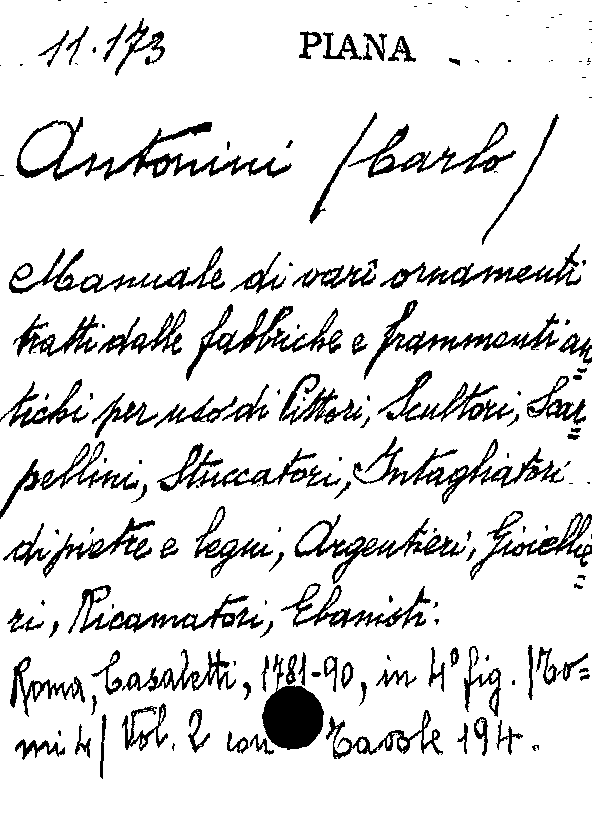 11.173 PIANA
Antonini /Carlo/
Manuale di varî ornamenti
tratti dalle fabbriche e frammenti an=
tichi per uso di Pittori, Scultori, Scar=
pellini, Stuccatori, Intagliatori
di pietre e legni, Argentieri, Gioiellie=
ri, Ricamatori, Ebanisti:
Roma, Casaletti, 1781-90, in 4º fig. /To=
mi 4/ Vol. 2 con Tavole 194.